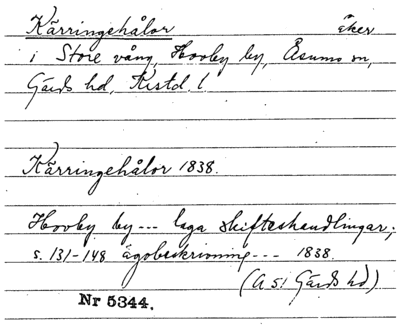 Kärringehålor åker
i Store vång, Hovby by, Åsums sn,
Gärds hd, Kristd. l.
Kärringehålor 1838.
Hovby by --- laga skifteshandlingar;
s. 131-148 ägobeskrivning --- 1838.
(A 51 Gärds hd)
Nr 5344.